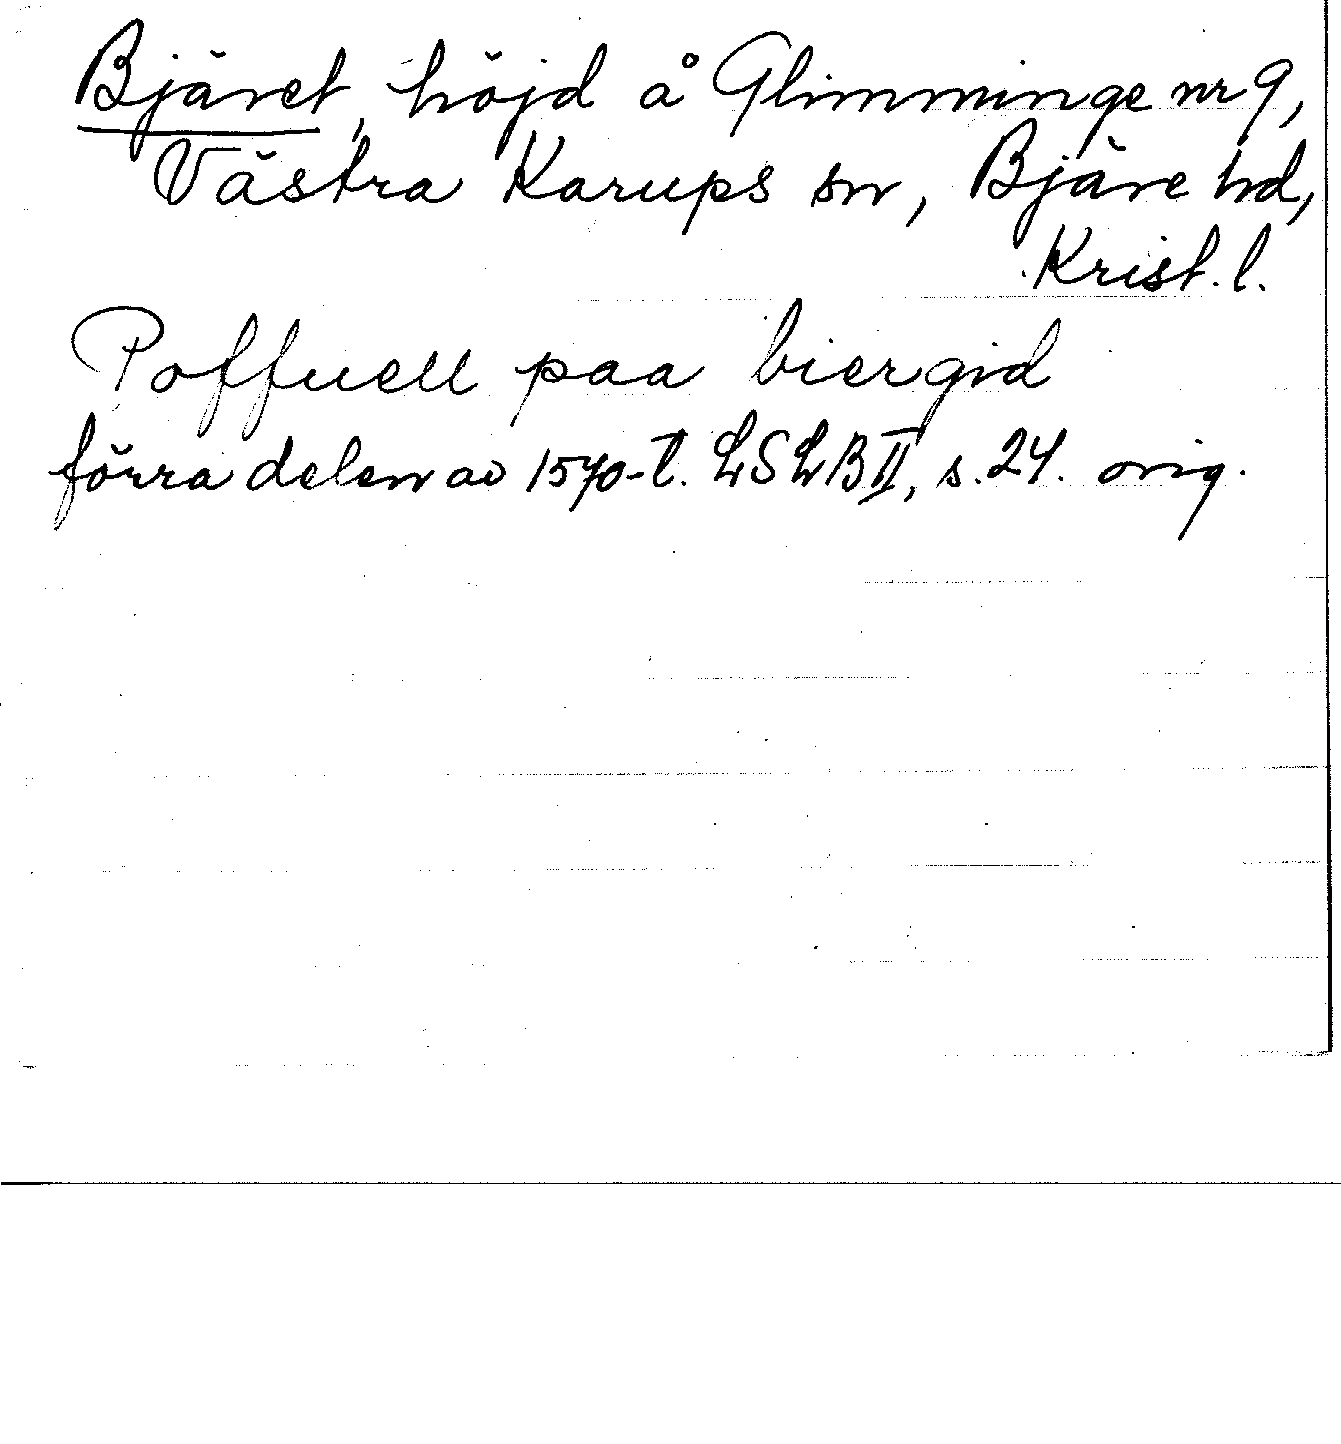 Bjäret, höjd å Glimminge nr 9,
Västra Karups sn, Bjäre hd,
Krist. l.
Poffuell paa biergid
förra delen av 1570-t. LSLB II, s. 24. orig.